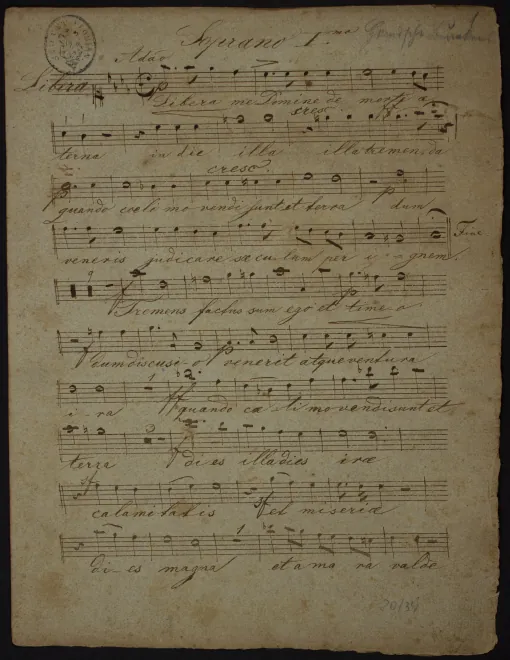 Soprano 1.ma
Adão
Libera
Libera me Domine de morte a
cresc.
terna in die illa illa tremenda
cresc.
quando coelo movende sunt et terra dum
veneris judicare seculum per i-gnem.
Fine
9
Tremens factus sum ego et time o
cum discusi-o venerit atque ventura
1
i-ra quando ca li movendi sunt et
3
terra dies illa dies iræ
calametatis et miseria
1
di-es magna et ama ra valde
20/34